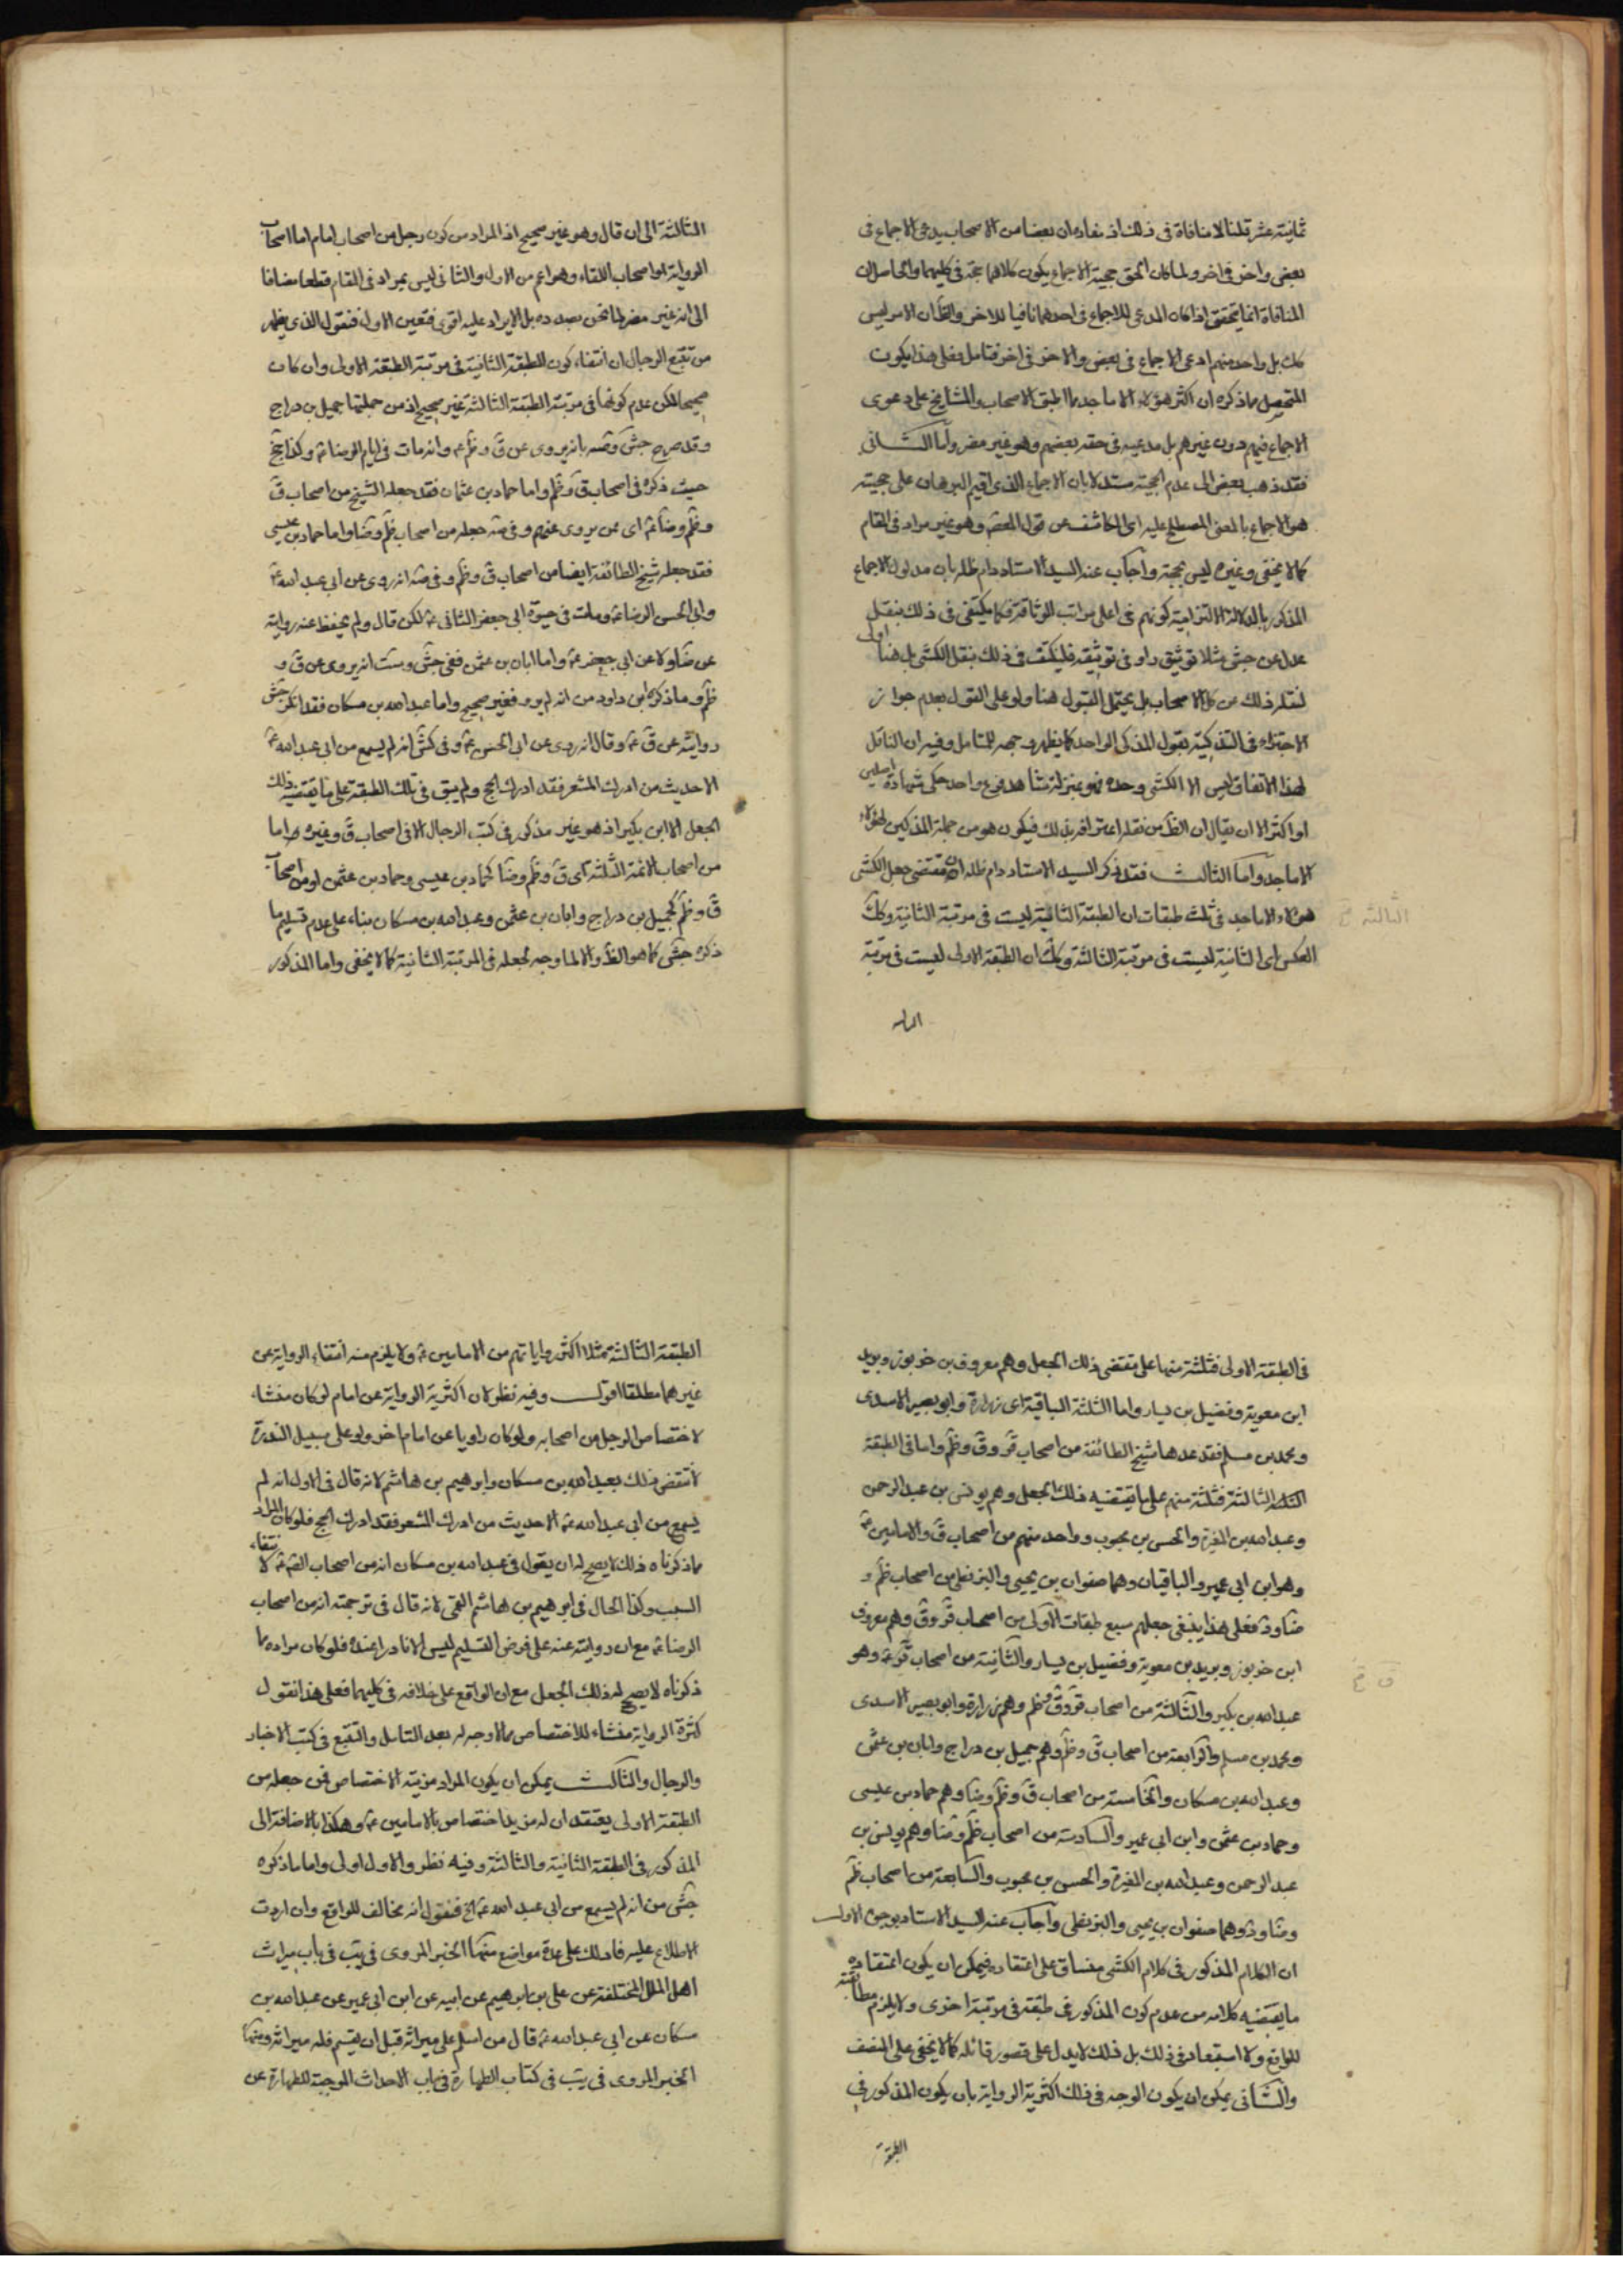 ثمانية عشر قلنا لا منافاة فى ذلك اذ مفاده ان بعضا من الاصحاب يدعى الاجماع فى
بعض واخر فى اخر ولما كان الحق حجية الاجماع يكون كلاهما حجة فى كليهما والحاصل ان
المنافاة انما يتحقق اذا كان المدعى للاجماع فى احدهما نافيا للاخر والظ ان الامر ليس
كك بل واحد منهم ادعى الاجماع فى بعض والاخر فى اخر فتامل فعلى هذا يكون
المتحصل مما ذكره ان اكثر هؤلاء الاماجد مما اطبق الاصحاب والمشايخ على دعوى
الاجماع فيهم دون غيرهم بل مدعيه فى حقه بعضهم وهو غير مضر واما الثانى
فقد ذهب بعض الى عدم الحجية مستدلا بان الاجماع الذى اقيم البرهان على حجيته
هو الاجماع بالمعنى المصطلح عليه اى الكاشف عن قول المعصوم وهو غير مراد فى المقام
كما لا يخفى وغيره ليس بحجة واجاب عنه السيد الاستاد دام ظله بان مدلول الاجماع
المذكور بالدلالة الالتزامية كونهم فى اعلى مراتب الوثاقة فكما يكتفى فى ذلك بنقل
عدل عن جش مثلا توثيق راو فى توثيقه فليكتف فى ذلك بنقل الكشى بل هنا اولى
لنقله ذلك عن كل الاصحاب بل يحتمل القبول هنا ولو على القول بعدم جواز
الاجتزاء فى التذكية بقول المذكى الواحد كما يظهر وجهه للمتامل وفيه ان الناقل
لهذا الاتفاق ليس الا الكشى وحده فهو بمنزلة شاهد فرع واحد حكى شهادة اصلين
او اكثر الا ان يقال ان الظ من نقله اعترافه بذلك فيكون هو من جملة المذكين لهؤلاء
الاماجد واما الثالث فقد ذكر السيد الاستاد دام ظله ان مقتضى جعل الكشى
هؤلاء الاماجد فى ثلث طبقات ان الطبقة الثانية ليست فى مرتبة الثانية وكك
الثالثة
العكس اى الثانية ليست فى مرتبة الثالثة وكك ان الطبقة الاولى ليست فى مرتبة
الثالثة الى ان قال وهو غير صحيح اذ المراد من كون رجل من اصحاب امام اما اصحاب
الرواية او اصحاب اللقاء وهو اعم من الاول والثانى ليس بمراد فى المقام قطعا مضافا
الى انه غير مضر لما نحن بصدده بل الايراد عليه اقوى فتعين الاول فنقول الذى يظهر
من تتبع الرجال ان انتفاء كون الطبقة الثانية فى مرتبة الطبقة الاولى وان كان
صحيحا لكن عدم كونها فى مرتبة الطبقة الثالثة غير صحيح اذ من جملتها جميل بن دراج
وقد صرح جش بانه يروى عن ق وظم ع وانه مات فى ايام الرضا ع وكذا جخ
حيث ذكره فى اصحاب ق وظم واما حماد بن عثمان فقد جعله الشيخ من اصحاب ق
وظم وضا ع اى ممن يروى عنهم وفى ست جعله من اصحاب ظم وضا واما حماد بن عيسى
فقد جعله شيخ الطائفة ايضا من اصحاب ق وظم وفى ست انه روى عن ابى عبد الله ع
وابى الحسن الرضا ع ومات فى حيوة ابى جعفر الثانى ع لكن قال ولم يحفظ عنه رواية
عن ضا ولا عن ابى جعفر ع واما ابان بن عثمن ففى جش وست انه يروى عن ق و
ظم وما ذكره ابن داود من انه لم يرو فغير صحيح واما عبد الله بن مسكان فقد انكر جش
روايته عن ق ع وقال انه روى عن ابى الحسن ع وفى كش انه لم يسمع من ابى عبد الله ع
الا حديث من ادرك المشعر فقد ادرك الحج ولم يبق فى تلك الطبقة على ما يقتضيه ذلك
الجعل الا ابن بكير اذ هو غير مذكور فى كتب الرجال الا فى اصحاب ق وغيره اما
من اصحاب الائمة الثلثة اى ق وظم وضا كحماد بن عيسى وحماد بن عثمن او من اصحاب
ق وظم كجميل بن دراج وابان بن عثمن وعبد الله بن مسكان بناء على عدم تسليم ما
ذكره جش كما هو الظ والا لما وجه لجعله فى المرتبة الثانية كما لا يخفى واما المذكور
فى الطبقة الاولى فثلثة منها على مقتضى ذلك الجعل وهم معروف بن خربوز وبريد
ابن معوية وفضيل بن يسار واما الثلثة الباقية اى زرارة وابو بصير الاسدى
ومحمد بن مسلم فقد عدها شيخ الطائفة من اصحاب قر وق وظم واما فى الطبقة
الثالثة فثلثة منهم على ما يقتضيه ذلك الجعل وهم يونس بن عبد الرحمن
وعبد الله بن المغيرة والحسن بن محبوب وواحد منهم من اصحاب ق والامامين ع
وهو ابن ابى عمير والباقيان وهما صفوان بن يحيى والبزنطى من اصحاب ظم و
ضا ود فعلى هذا ينبغى جعلهم سبع طبقات الاولى من اصحاب قر وق وهم معروف
ابن خربوز وبريد بن معوية وفضيل بن يسار والثانية من اصحاب ق ع وهو
عبد الله بن بكير والثالثة من اصحاب قر وق وظم وهم زرارة وابو بصير الاسدى
ومحمد بن مسلم والرابعة من اصحاب ق وظم وهم جميل بن دراج وابان بن عثمن
وعبد الله بن مسكان والخامسة من اصحاب ق وظم وضا وهم حماد بن عيسى
وحماد بن عثمن وابن ابى عمير والسادسة من اصحاب ظم وضا وهم يونس بن
عبد الرحمن وعبد الله بن المغيرة والحسن بن محبوب والسابعة من اصحاب ظم
وضا ود وهما صفوان بن يحيى والبزنطى واجاب عنه السيد الاستاد بوجوه الاول
ان الكلام المذكور فى كلام الكشى منساق على اعتقاده فيمكن ان يكون اعتقاده
ما يقتضيه كلامه من عدم كون المذكور فى طبقة فى مرتبة اخرى ولا يلزم مطابقته
للواقع ولا استبعاد فى ذلك بل ذلك لا يدل على قصور قائله كما لا يخفى على المنصف
والثانى يمكن ان يكون الوجه فى ذلك اكثرية الرواية بان يكون المذكور فى
الطبقة
الطبقة الثالثة مثلا اكثر رواياتهم من الامامين ع ولا يلزم منه انتفاء الرواية عن
غيرهما مطلقا اقول وفيه نظر لان اكثرية الرواية عن امام لو كان منشاء
لاختصاص الرجل من اصحابه ولو كان راويا عن امام اخر ولو على سبيل الندرة
لانتقض ذلك بعبد الله بن مسكان وابراهيم بن هاشم لانه قال فى الاول انه لم
يسمع من ابى عبد الله ع الا حديث من ادرك المشعر فقد ادرك الحج فلو كان المراد
ما ذكرناه ذلك لا يصح له ان يقول فى عبد الله بن مسكان انه من اصحاب الص ع لانتفاء
السبب وكذا الحال فى ابرهيم بن هاشم القمى لانه قال فى ترجمته انه من اصحاب
الرضا ع مع ان روايته عنه على فرض التسليم ليس الا نادرا عنده فلو كان مراده ما
ذكرناه لا يصح له ذلك الجعل مع ان الواقع على خلافه فى كليهما فعلى هذا نقول
كثرة الرواية منشاء للاختصاص مما لا وجه له بعد التامل والتتبع فى كتب الاخبار
والرجال والثالث يمكن ان يكون المراد مزية الاختصاص فمن جعله من
الطبقة الاولى يعتقد ان له مزيد اختصاص بالامامين ع وهكذا بالاضافة الى
المذكور فى الطبقة الثانية والثالثة وفيه نظر والاول اولى واما ما ذكره
جش من انه لم يسمع من ابى عبد الله ع الخ فنقول انه مخالف للواقع وان اردت
الاطلاع عليه فادلك على عدة مواضع منها الخبر المروى فى يب فى باب ميراث
اهل الملل المختلفة عن على بن ابرهيم عن ابيه عن ابن ابى عمير عن عبد الله بن
مسكان عن ابى عبد الله ع قال من اسلم على ميراثه قبل ان يقسم فله ميراثه ومنها
الخبر المروى فى يب فى كتاب الطهارة فى باب الاحداث الموجبة للطهارة عن